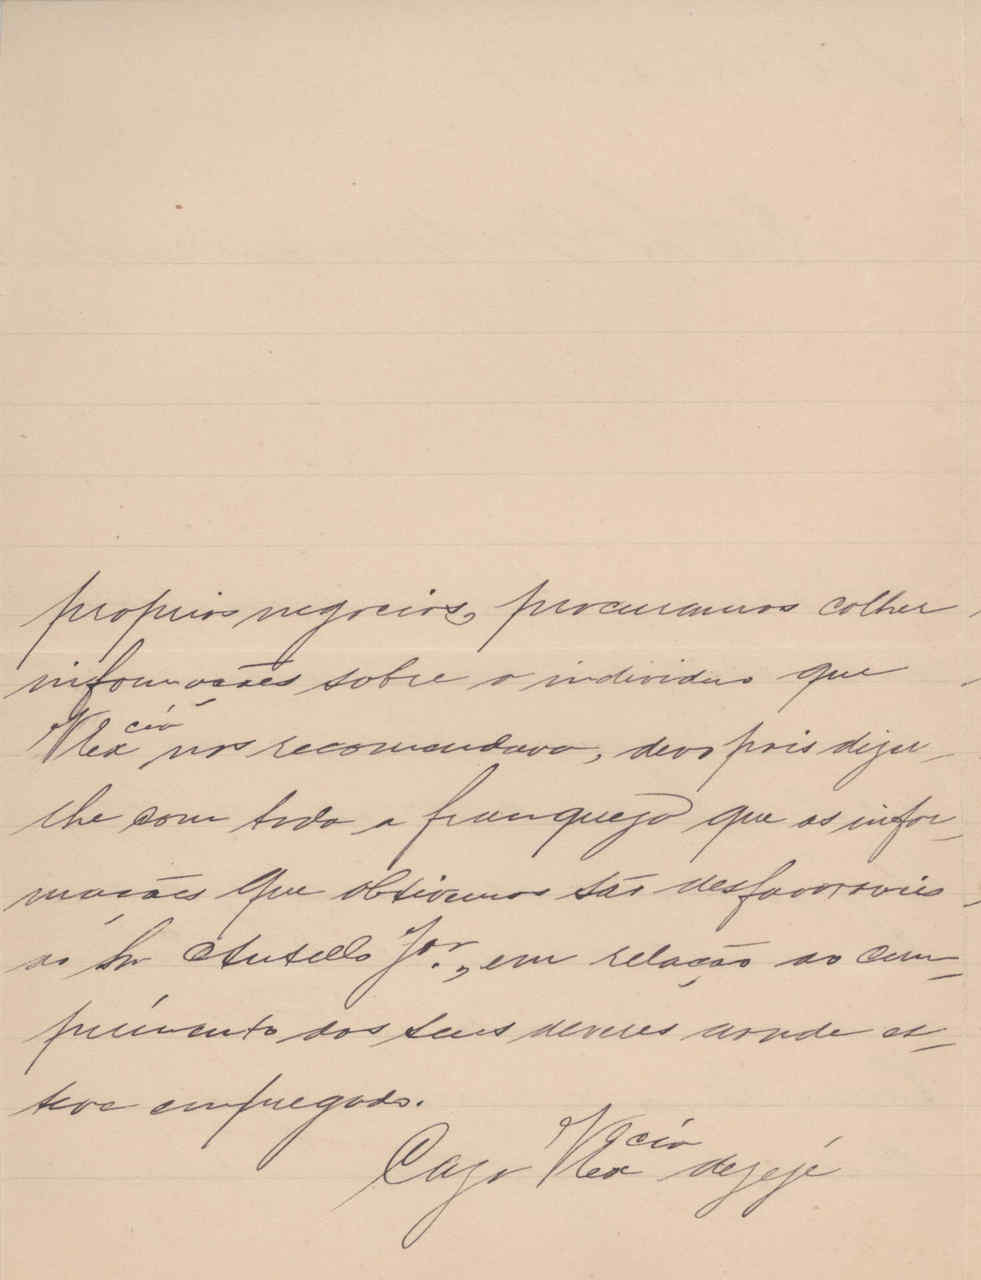 proprios negocios, procuramos colher
informações sobre o individuo que
V Ex.cia nos recomendava, devo pois dizer-
lhe com toda a franqueza que as infor-
mações que obtivemos são desfavoraveis
ao Snr Antello Jor., em relação ao cum-
primento dos seus deveres aonde es-
teve empregado.
Cazo V Ex.cia dezejé